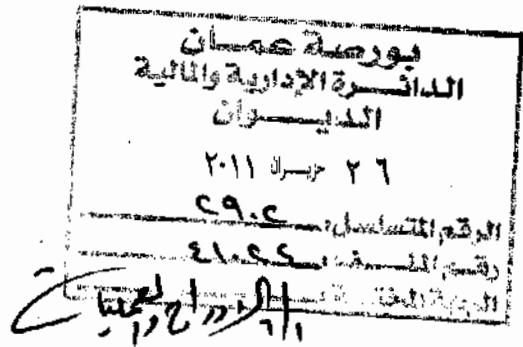 بورصة عمان
الدائرة الإدارية والمالية
الديوان
٢٦ حزيران ٢٠١١
الرقم المتسلسل: ٢٩٠٢
رقم الملف: ٤١٠٢٢
الجهة المختصة: